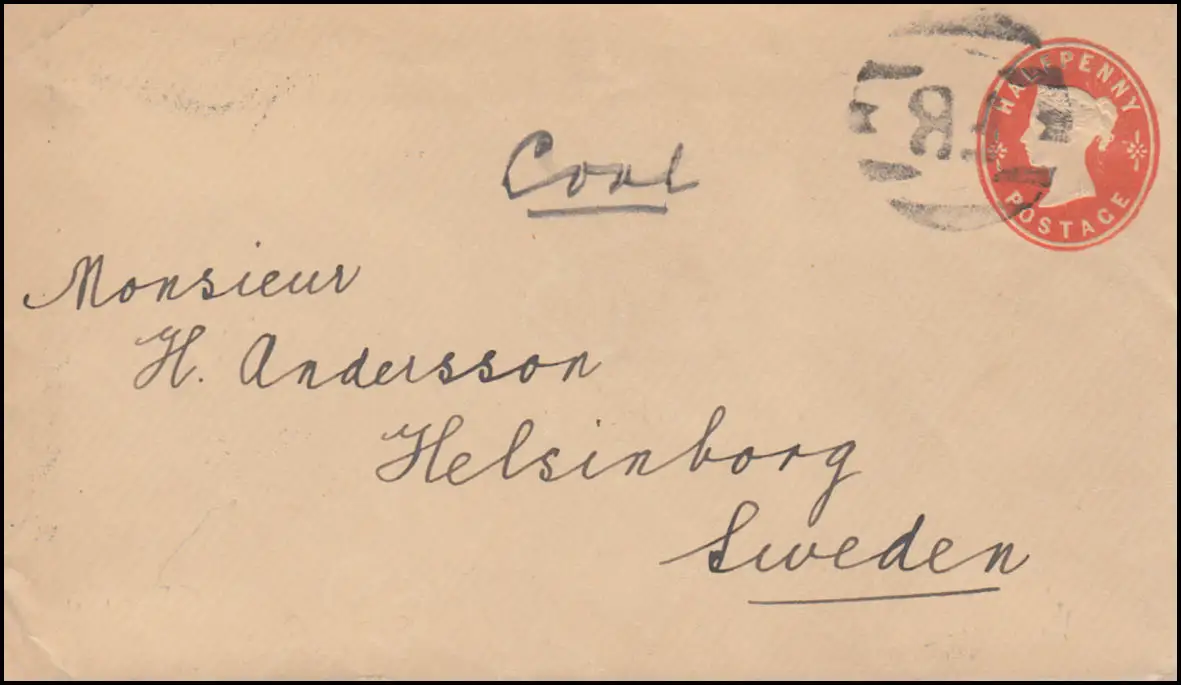 HALFPENNY
POSTAGE
Coal
Monsieur
H. Andersson
Helsinborg
Sweden